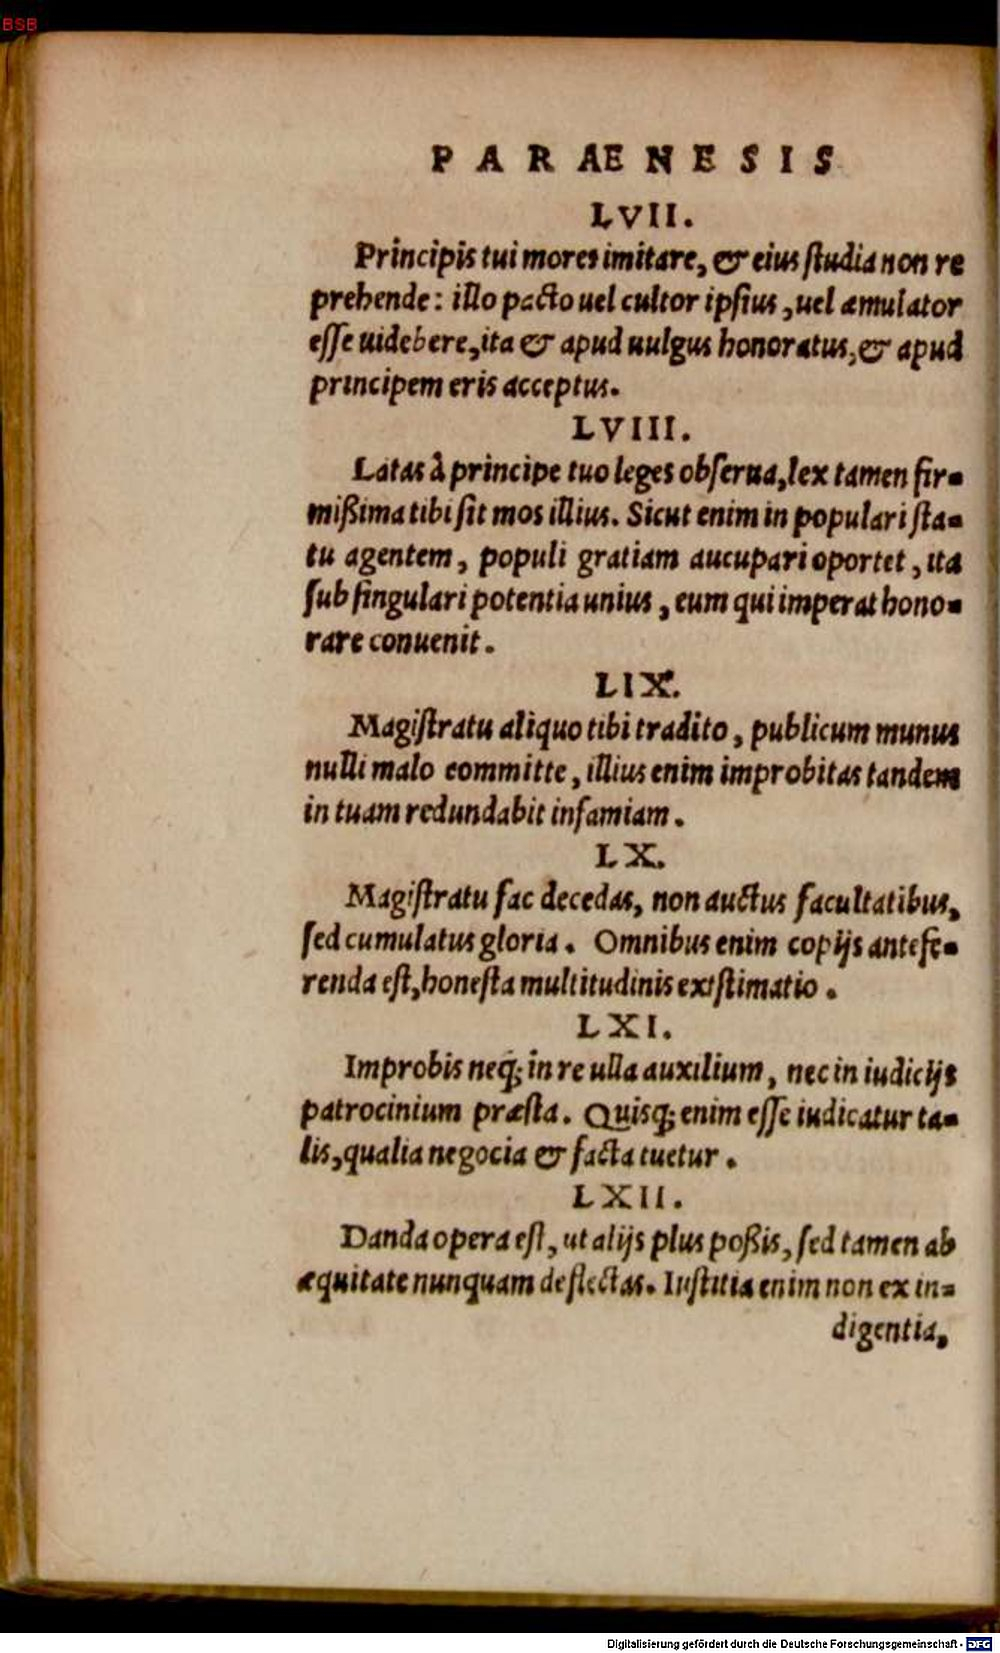 BSB
PARAENESIS
LVII.
Principis tui mores imitare, & eius ſtudia non re
prehende: illo pacto uel cultor ipſius, uel æmulator
eſſe uidebere, ita & apud uulgus honoratus, & apud
principem eris acceptus.
LVIII.
Latas à principe tuo leges obſerua, lex tamen fir-
mißima tibi ſit mos illius. Sicut enim in populari ſta-
tu agentem, populi gratiam aucupari oportet, ita
ſub ſingulari potentia unius, eum qui imperat hono-
rare conuenit.
LIX.
Magiſtratu aliquo tibi tradito, publicum munus
nulli malo committe, illius enim improbitas tandem
in tuam redundabit infamiam.
LX.
Magiſtratu fac decedas, non auctus facultatibus,
ſed cumulatus gloria. Omnibus enim copijs antefe-
renda eſt, honeſta multitudinis exiſtimatio.
LXI.
Improbis neq; in re ulla auxilium, nec in iudicijs
patrocinium præſta. Quisq; enim eſſe iudicatur ta-
lis, qualia negocia & facta tuetur.
LXII.
Danda opera eſt, ut alijs plus poßis, ſed tamen ab
æquitate nunquam deflectas. Iuſtitia enim non ex in-
digentia,
Digitalisierung gefördert durch die Deutsche Forschungsgemeinschaft - DFG